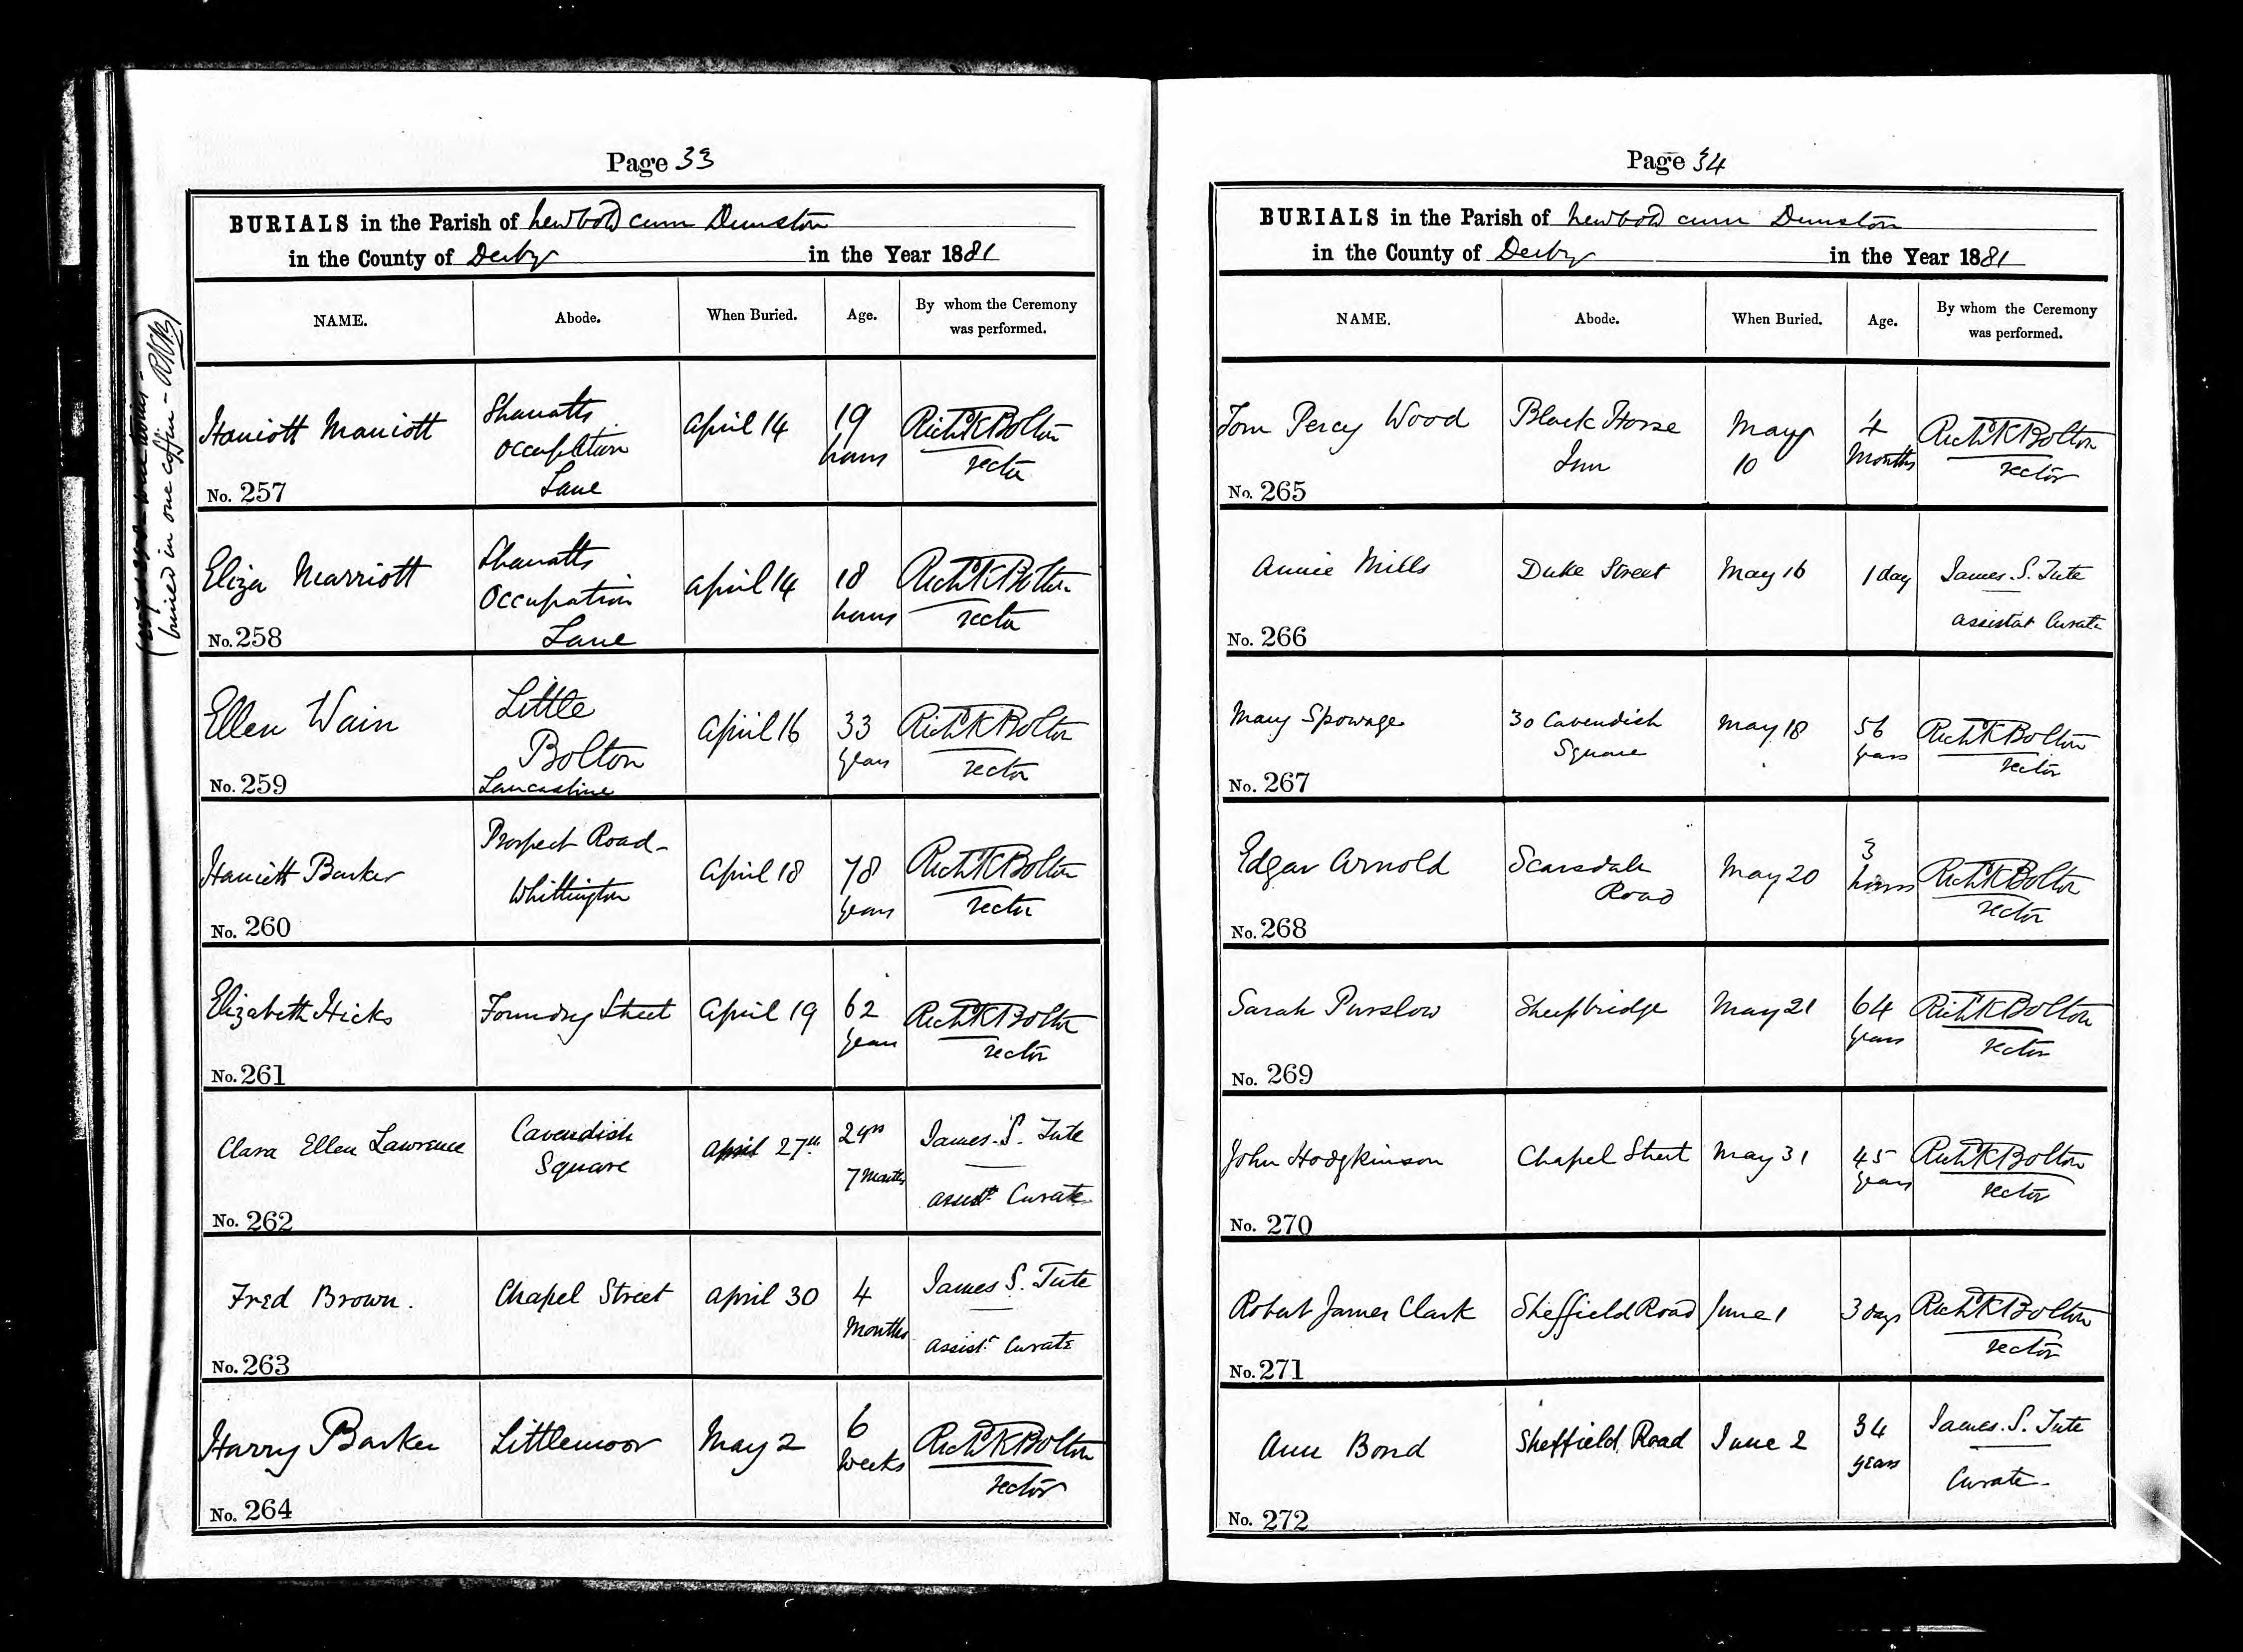 Page 33
BURIALS in the Parish of Newbold cum Dunston
in the County of Derby in the Year 1881
NAME. Abode. When Buried. Age. By whom the Ceremony
was performed.
buried in one coffin - RKB)
Harriott Marriott
Occupation
Lane
April 14
19
hours
Richd K Bolton
rector
No. 257
Eliza Marriott
Occupation
Lane
April 14
18
hours
Richd K Bolton
rector
No. 258
Ellen Wain
Little
Bolton
Lancashire
April 16
33
years
Richd K Bolton
rector
No. 259
Harriett Barker
Prospect Road -
Whittington
April 18
78
years
Richd K Bolton
rector
No. 260
Elizabeth Hicks
Foundry Street
April 19
62
years
Richd K Bolton
rector
No. 261
Clara Ellen Lawrence
Cavendish
Square
April 27th
2 yrs
7 Months
James. S. Tute
assist. Curate
No. 262
Fred Brown.
Chapel Street
April 30
4
Months
James S. Tute
assist. Curate
No. 263
Harry Barker
Littlemoor
May 2
6
weeks
Richd K Bolton
rector
No. 264
Page 34
BURIALS in the Parish of Newbold cum Dunston
in the County of Derby in the Year 1881
NAME. Abode. When Buried. Age. By whom the Ceremony
was performed.
Tom Percy Wood
Black Horse
Inn
May
10
4
Months
Richd K Bolton
rector
No. 265
Annie Mills
Duke Street
May 16
1 day
James. S. Tute
assistat Curate
No. 266
Mary Spowage
30 Cavendish
Square
May 18
56
years
Richd K Bolton
rector
No. 267
Edgar Arnold
Scarsdale
Road
May 20
3
hours
Richd K Bolton
rector
No. 268
Sarah Purslow
Sheepbridge
May 21
64
years
Richd K Bolton
rector
No. 269
John Hodgkinson
Chapel Street
May 31
45
years
Richd K Bolton
rector
No. 270
Robert James Clark
Sheffield Road
June 1
3 days
Richd K Bolton
rector
No. 271
Ann Bond
Sheffield Road
June 2
34
years
James. S. Tute
Curate
No. 272